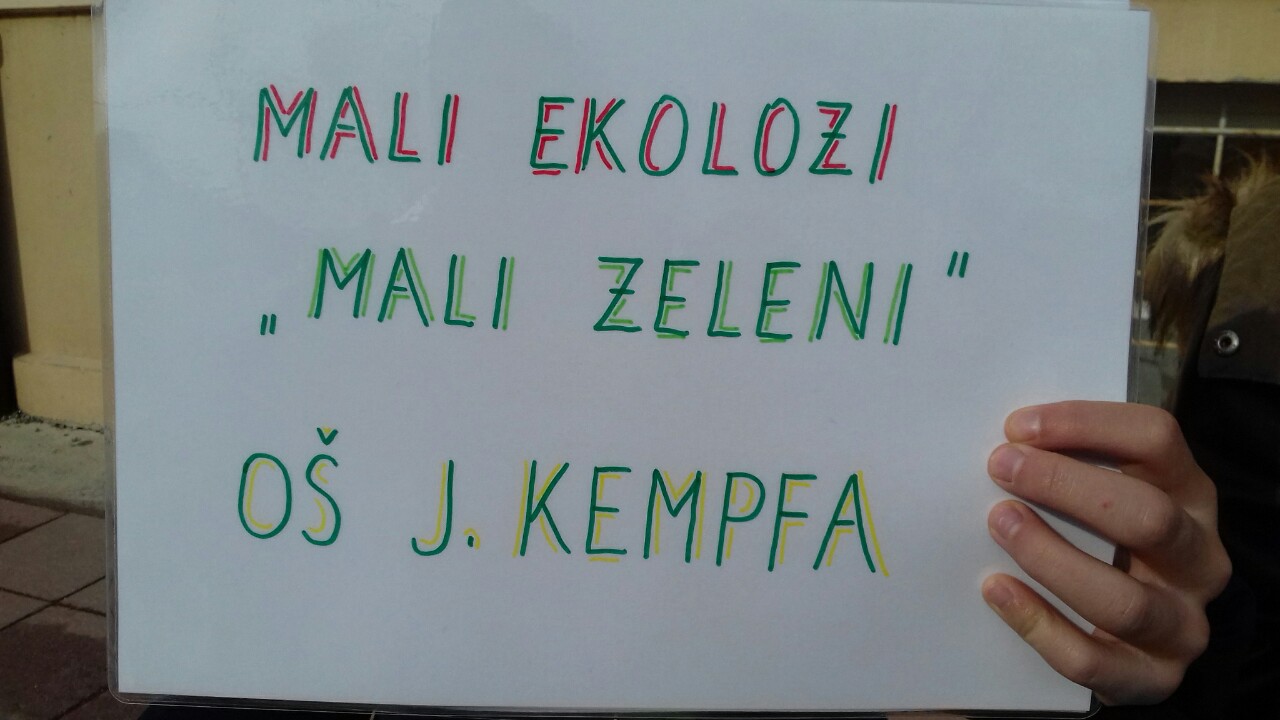 MALI EKOLOZI
„MALI ZELENI"
OŠ J. KEMPFA